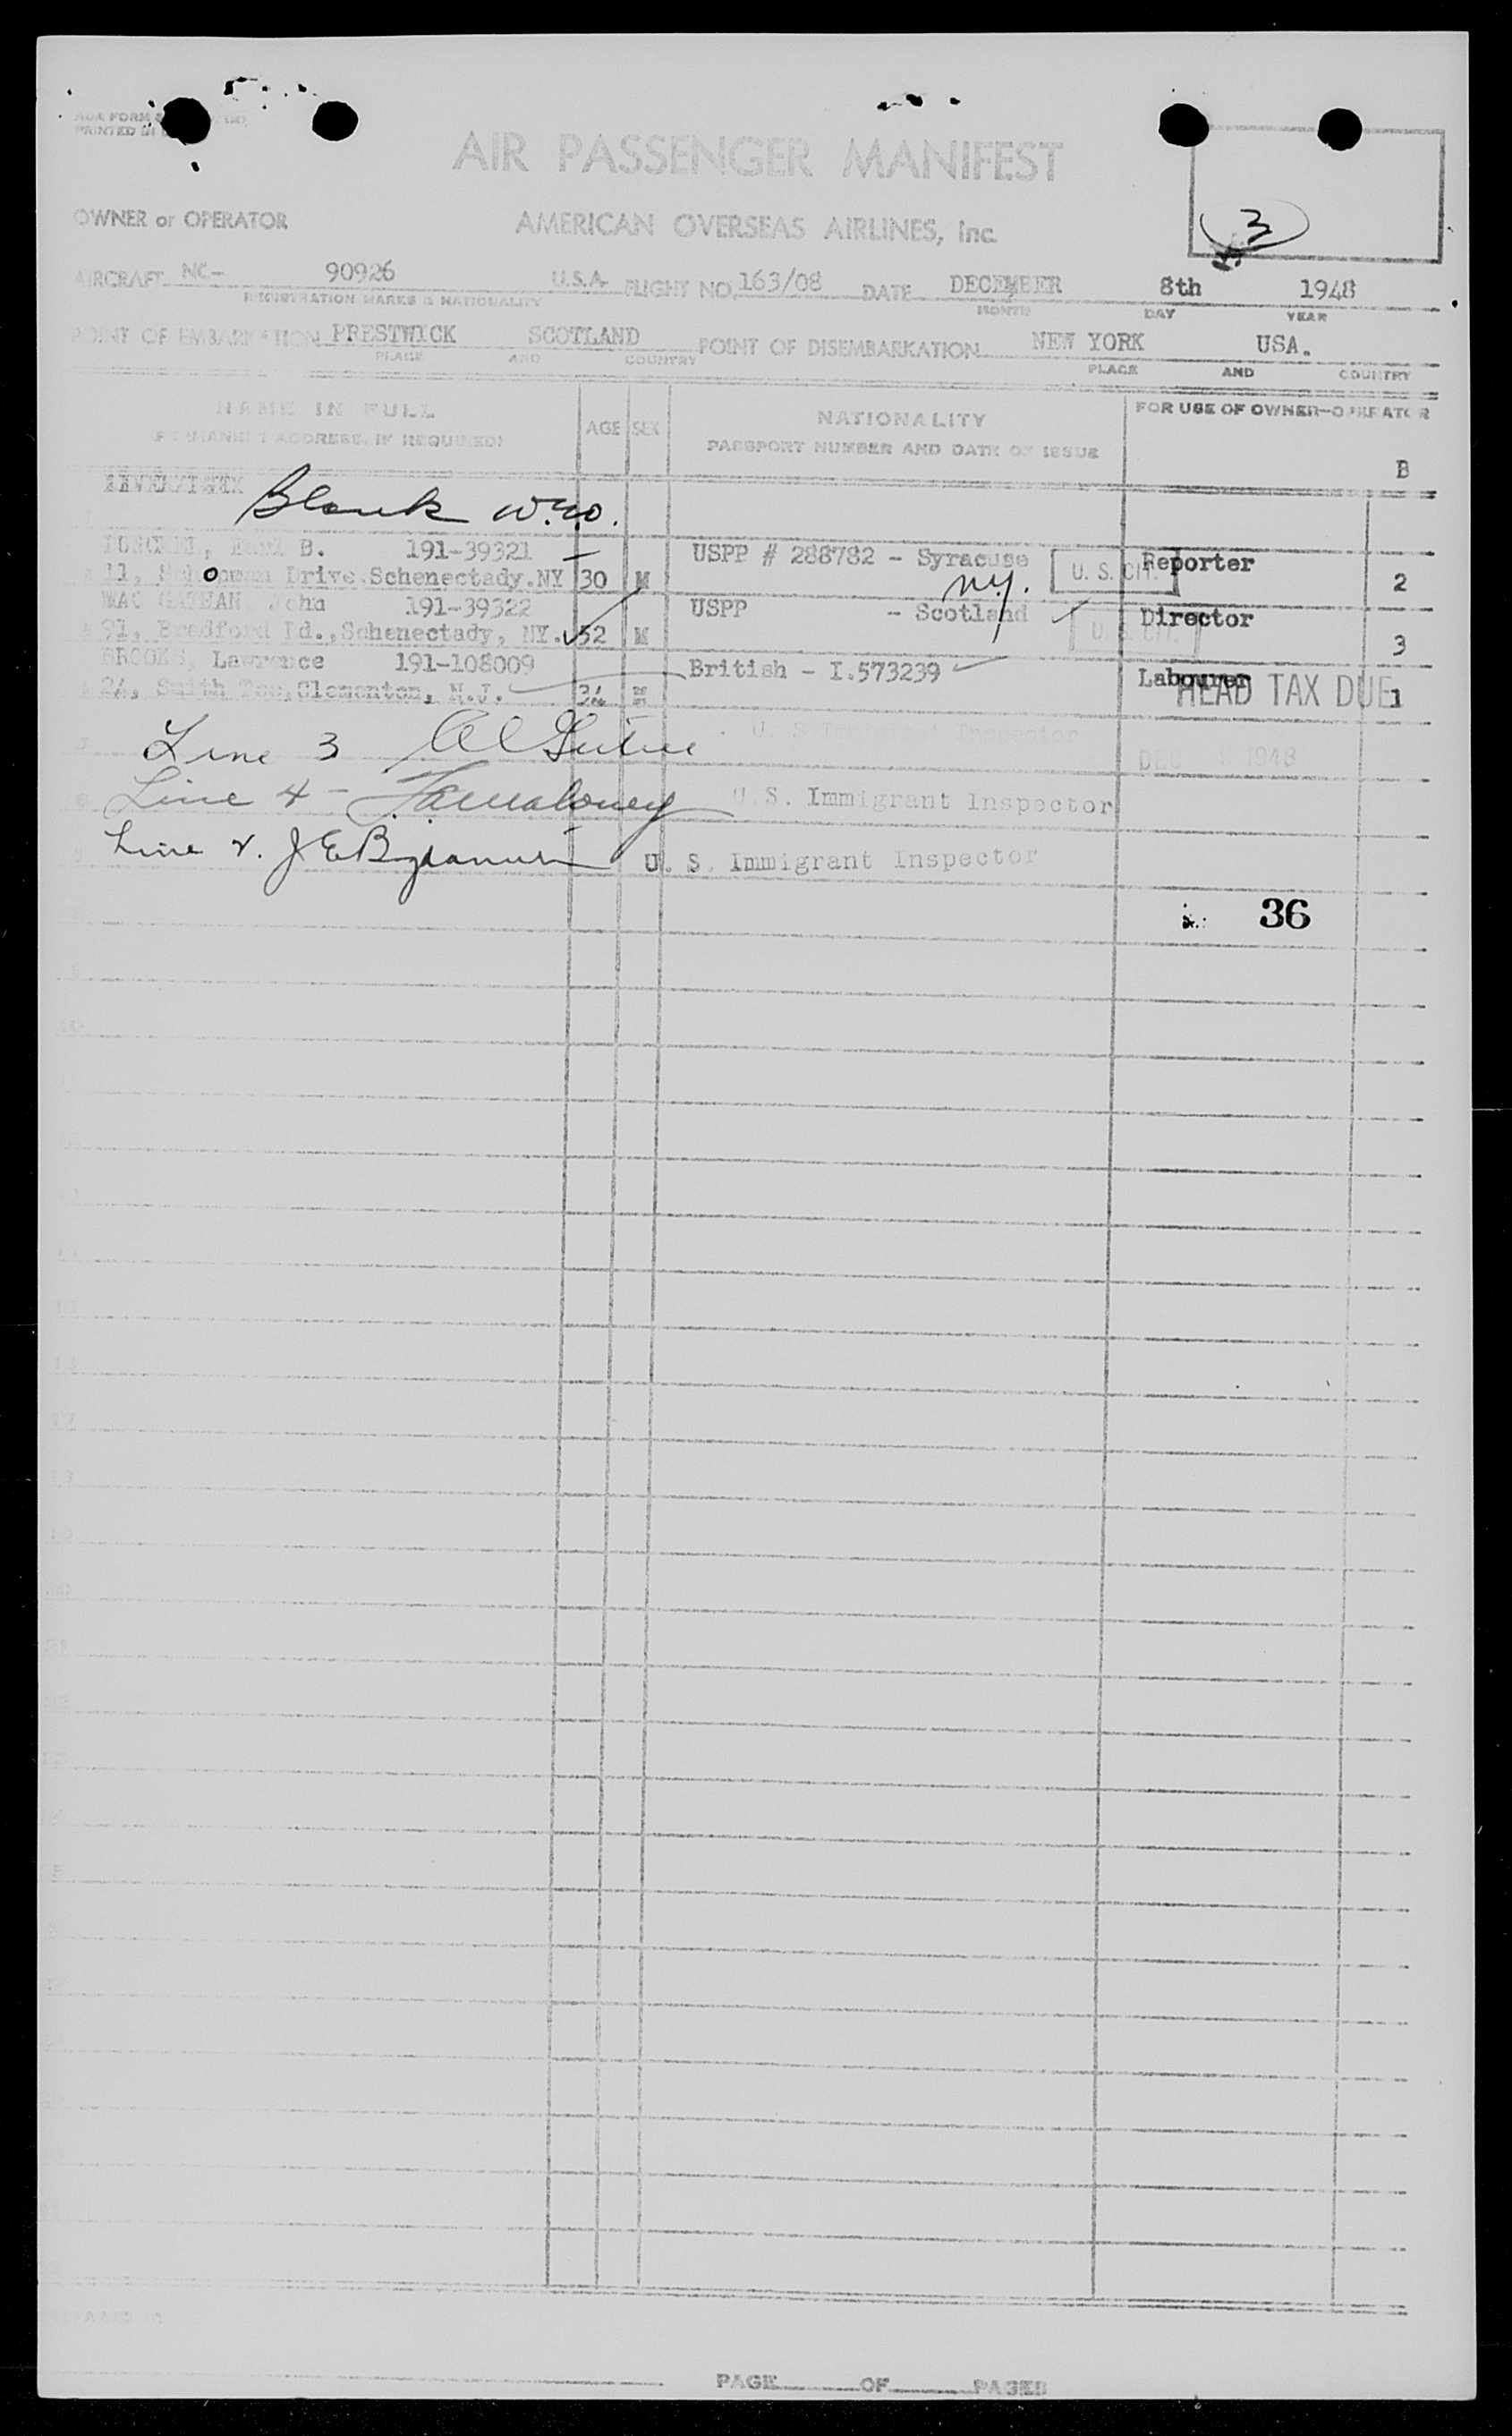 AOA FORM
PRINTED IN
AIR PASSENGER MANIFEST
OWNER or OPERATOR AMERICAN OVERSEAS AIRLINES, Inc.
3
AIRCRAFT NC- 90926 U.S.A. FLIGHT NO. 163/08 DATE DECEMBER 8th 1948
REGISTRATION MARKS & NATIONALITY MONTH DAY YEAR
POINT OF EMBARKATION PRESTWICK SCOTLAND POINT OF DISEMBARKATION NEW YORK USA.
PLACE AND COUNTRY PLACE AND COUNTRY
NAME IN FULL AGE SEX NATIONALITY FOR USE OF OWNER-OPERATOR
PERMANENT ADDRESS, IF REQUIRED) PASSPORT NUMBER AND DATE OF ISSUE
B
Blank
B. 191-39321 USPP # 288782 - Syracuse Reporter
11, Drive.Schenectady.NY 30 M N.Y. U. S. CIT. 2
MAC John 191-39322 USPP - Scotland Director
91, Bradford Rd.,Schenectady, NY. 52 M U. S. CIT. 3
BROOKS, Lawrence 191-108009 British - I.573239 Labourer
24, Smith Clementon, N.J. M HEAD TAX DUE 1
Line 3 U. S. Immigrant Inspector
DEC 1948
Line 4 - U.S. Immigrant Inspector
Line 2. U. S. Immigrant Inspector
36
PAGE OF PAGES